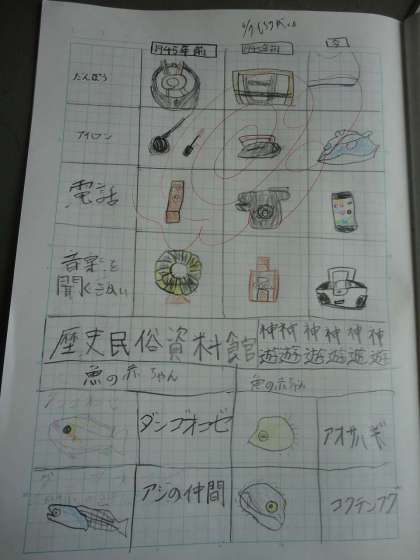 1945年前 1945年前 今
だんぼう
アイロン
電話
音楽を
聞くきかい
歴史民俗資料館 神遊 神遊 神遊 神遊 神遊 神遊
魚の赤ちゃん 魚の赤ちゃん
ダンゴオコゼ アオサハギ
アジの仲間 コクテンフグ